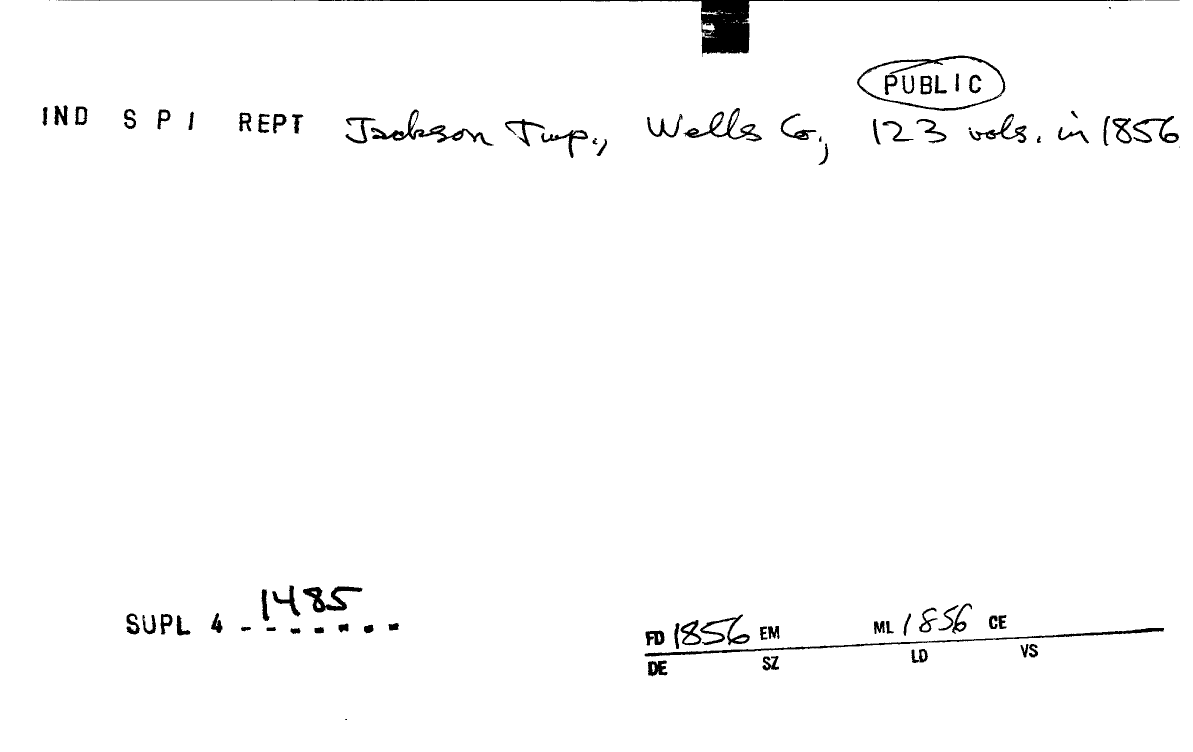 PUBLIC
IND S P I REPT Jackson Twp., Wells Co., 123 vols. in 1856
1485
SUPL 4 - - - - - - -
FD 1856 EM ML 1856 CE
DE SZ LD VS